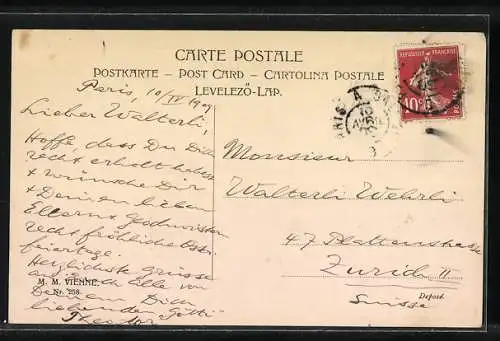 CARTE POSTALE
POSTKARTE – POST CARD – CARTOLINA POSTALE
LEVELEZŐ-LAP.
REPUBLIQUE FRANÇAISE
10c
POSTES
PARIS
Paris, 10/IV 190
Lieber Walterli,
Hoffe, dass Du Dich
recht erholt habest
& wünsche Dir
& Deinen lieben
Eltern & Geschwistern
recht fröhliche Oster-
feiertage.
Herzlichste Grüsse
an Euch Alle von
Deinem Dich
liebenden Götti
Theodor
M. M. VIENNE.
Nr. 258.
Monsieur
Walterli Wehrli
47 Plattenstrasse
Zurich II
Suisse
Deposé.